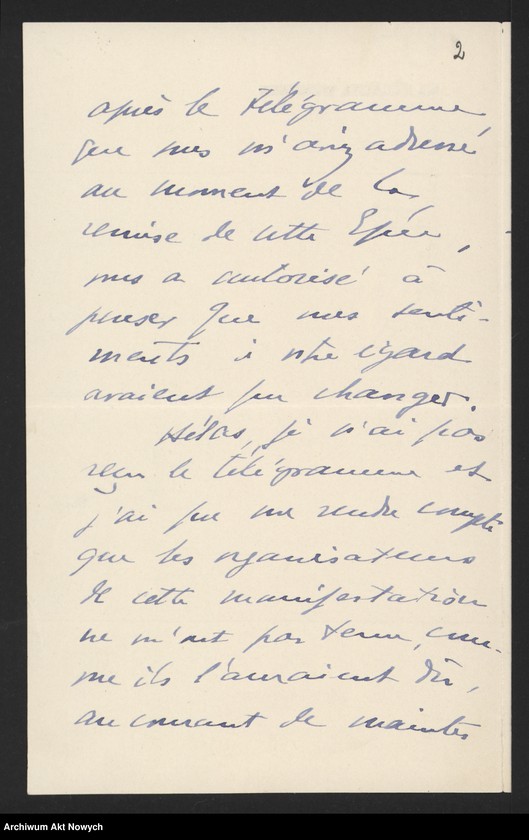 2
après le télégramme
que vous m'aviez adressé
au moment de la
remise de cette Epée,
vous a autorisé à
penser que mes senti-
ments à votre égard
avaient pu changer.
Hélas, je n'ai pas
reçu le télégramme et
j'ai pu me rendre compte
que les organisateurs
de cette manifestation
ne m'ont pas tenu, com-
me ils l'auraient dû,
au courant de maintes
Archiwum Akt Nowych